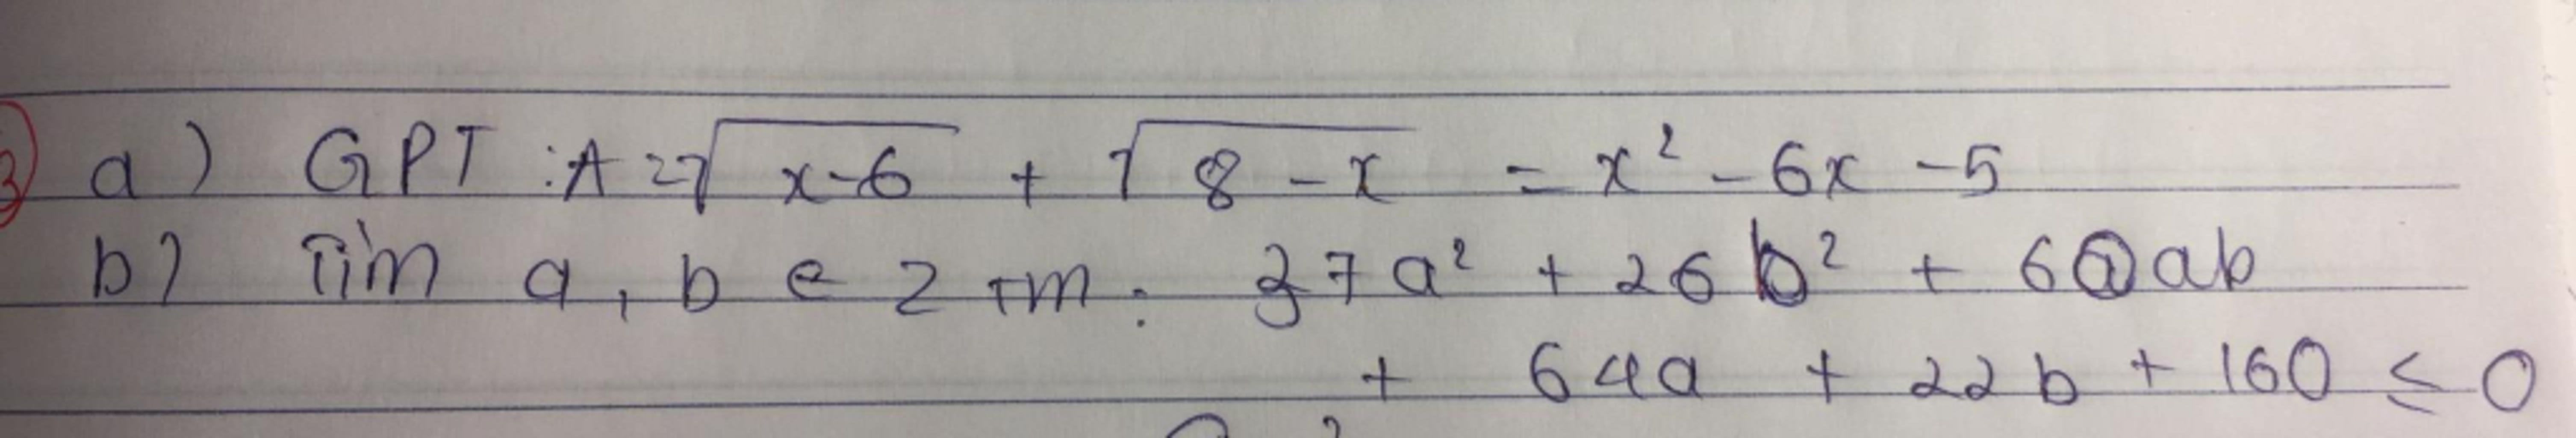 a) GPT : A = √x-6 + √8-x = x² - 6x - 5
b) Tìm a, b ∈ Z tm : 37a² + 26b² + 60ab
+ 64a + 22b + 160 ≤ 0